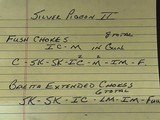 SILVER PIGEON II
FLUSH CHOKES 8 TOTAL
IC - M IN GUNS
C - SK - SK - IC - M - IM - F
BRILEY EXTENDED CHOKES
6 TOTAL
SK - SK - IC - LM - IM - FULL